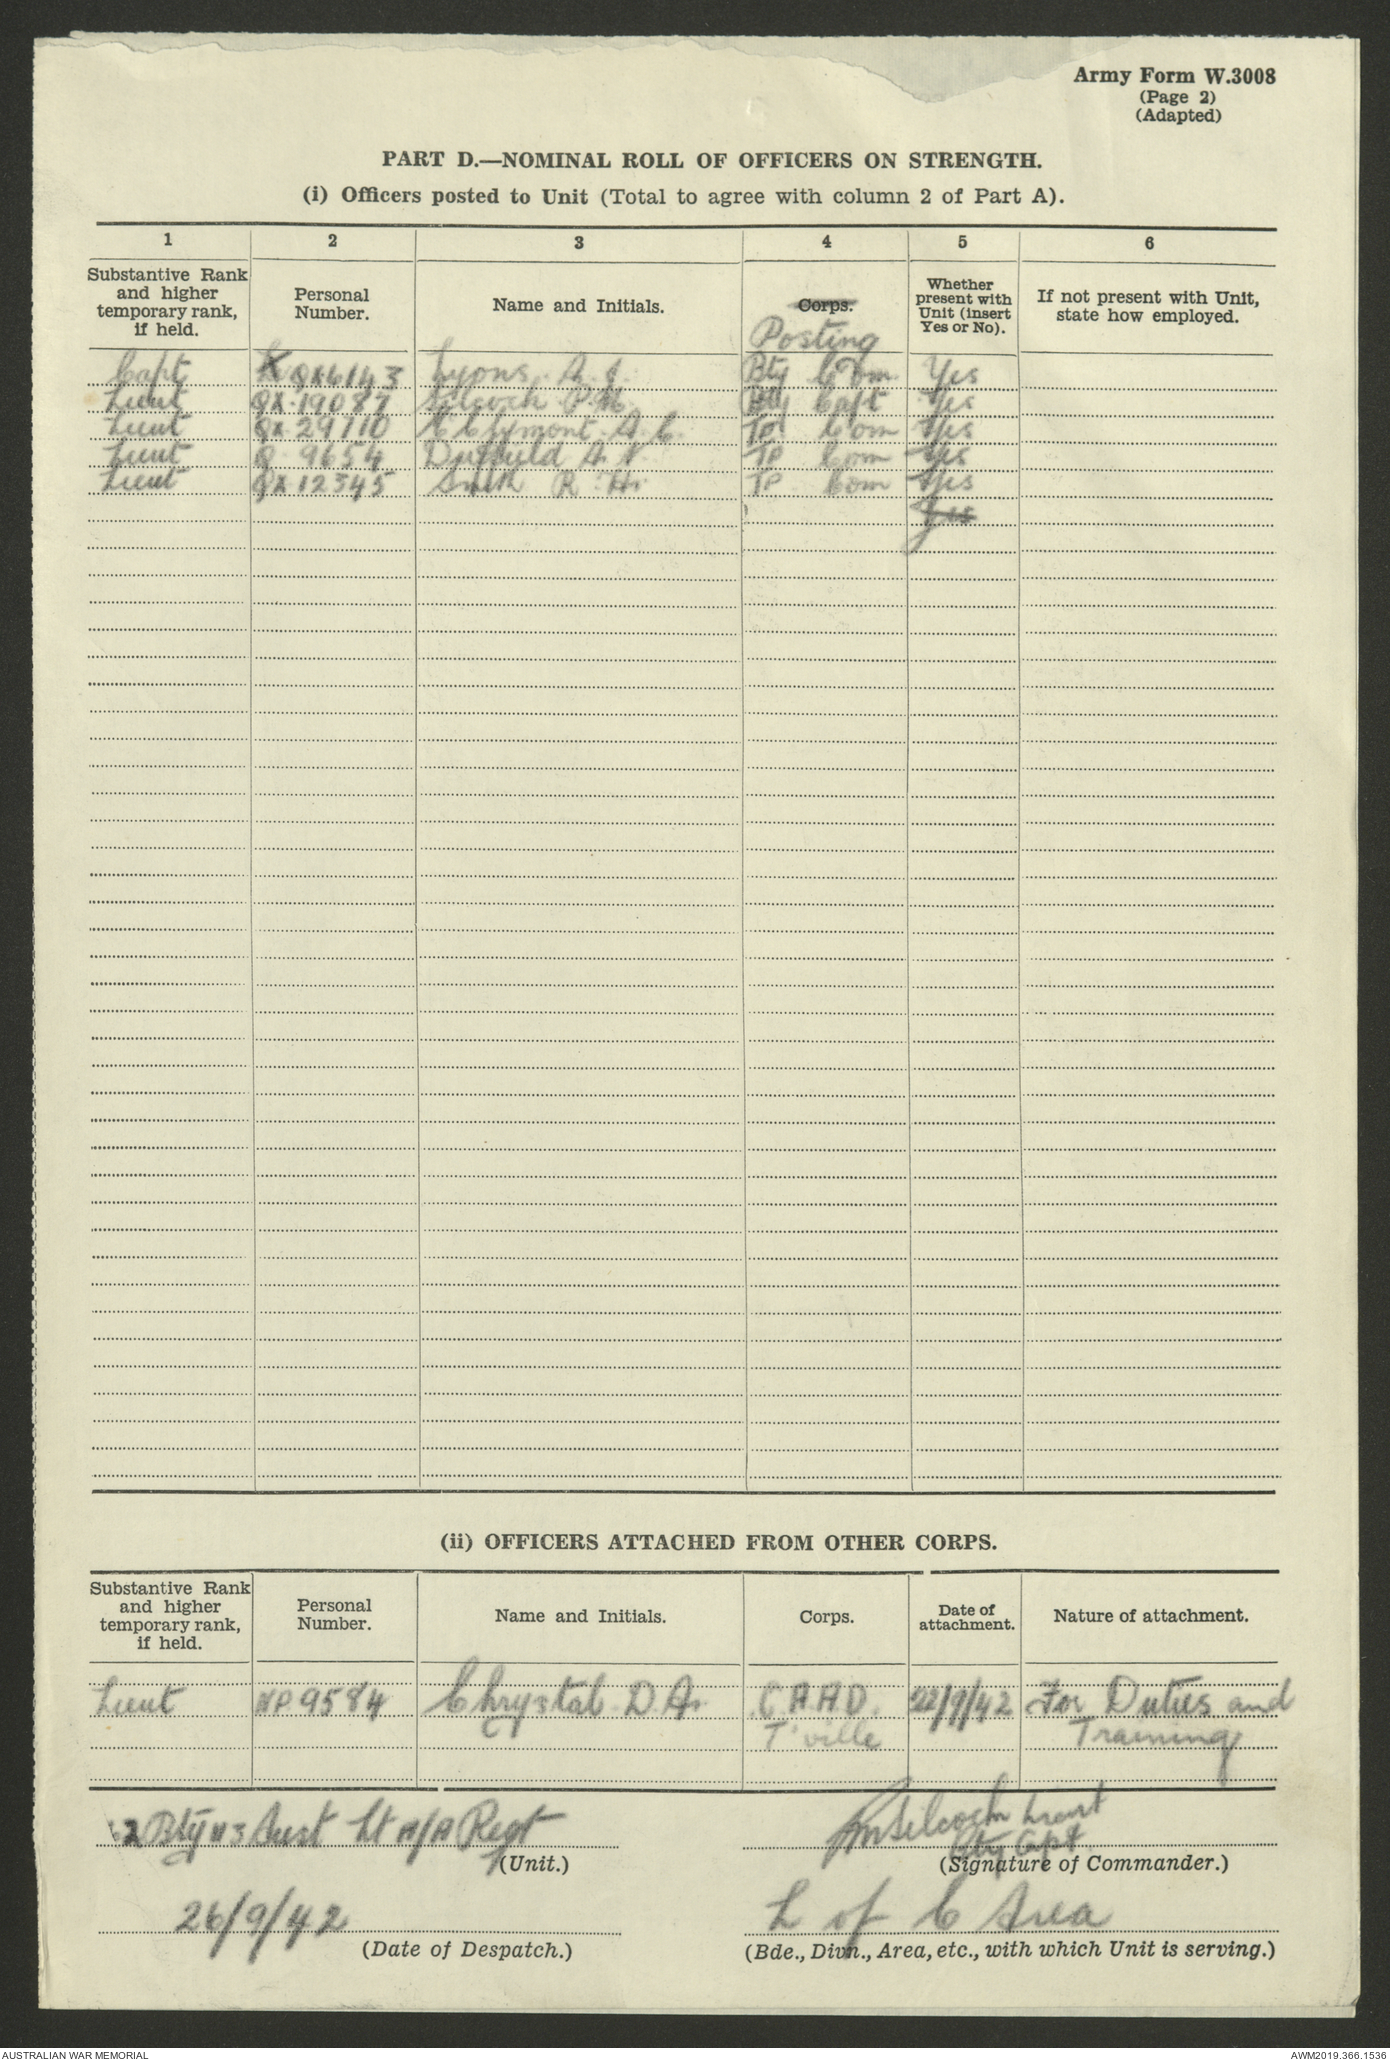 Army Form W.3008
(Page 2)
(Adapted)
PART D.—NOMINAL ROLL OF OFFICERS ON STRENGTH.
(i) Officers posted to Unit (Total to agree with column 2 of Part A).
1 2 3 4 5 6
Substantive Rank and higher temporary rank, if held. Personal Number. Name and Initials. Corps. Posting Whether present with Unit (insert Yes or No). If not present with Unit, state how employed.
Capt QX6143 Lyons. A. J. Bty Com. Yes
Lieut QX.19087 Silcock P.M. Bty Capt Yes
Lieut QX.29710 A. C. Tp Com Yes
Lieut Q. 9654 Duffield A. Tp Com Yes
Lieut QX12345 Smith R. H. Tp Com Yes
Yes
(ii) OFFICERS ATTACHED FROM OTHER CORPS.
Substantive Rank and higher temporary rank, if held. Personal Number. Name and Initials. Corps. Date of attachment. Nature of attachment.
Lieut NP.9584 Chrystal. D. A. C.A.A.D. 22/9/42 For Duties and
T'ville Training
2 Bty Aust Lt A/A Regt PMSilcock Lieut
Bty Capt
(Unit.) (Signature of Commander.)
26/9/42 L of C Area
(Date of Despatch.) (Bde., Divn., Area, etc., with which Unit is serving.)
AUSTRALIAN WAR MEMORIAL AWM2019.366.1536